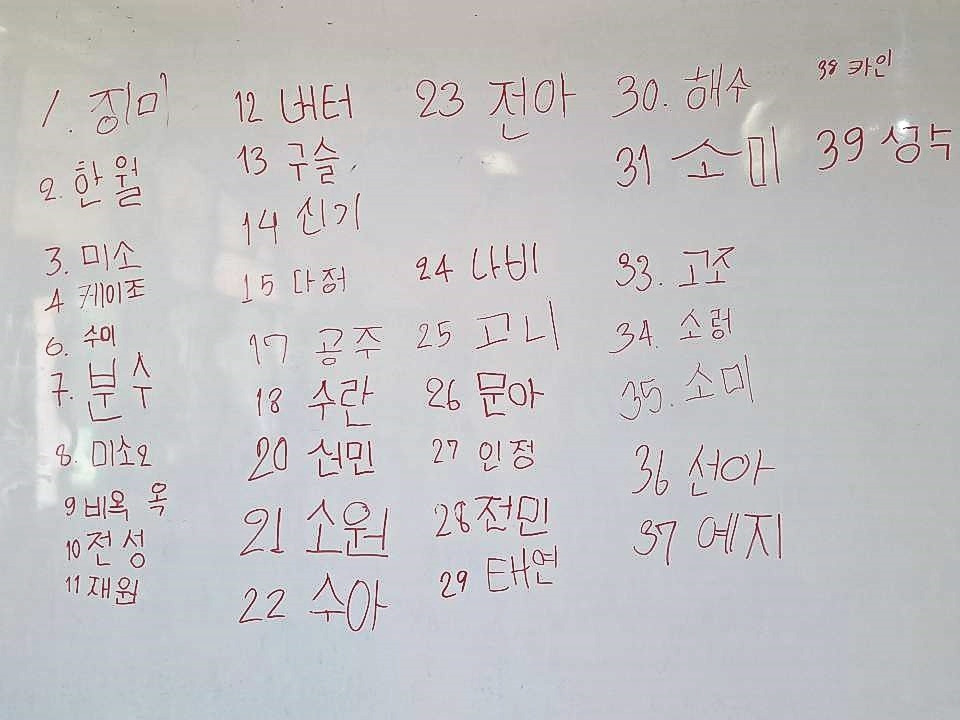 1. 장미
2. 한월
3. 미소
4 케이조
6. 수미
7. 분수
8. 미소2
9 비옥 옥
10 전성
11 재원
12 버터
13 구슬
14 신기
15 다정
17 공주
18 수란
20 선민
21 소원
22 수아
23 전아
24 나비
25 고니
26 문아
27 인정
28 전민
29 태연
30. 해수
31 소미
33. 고조
34. 소령
35. 소미
36 선아
37 예지
38 카인
39